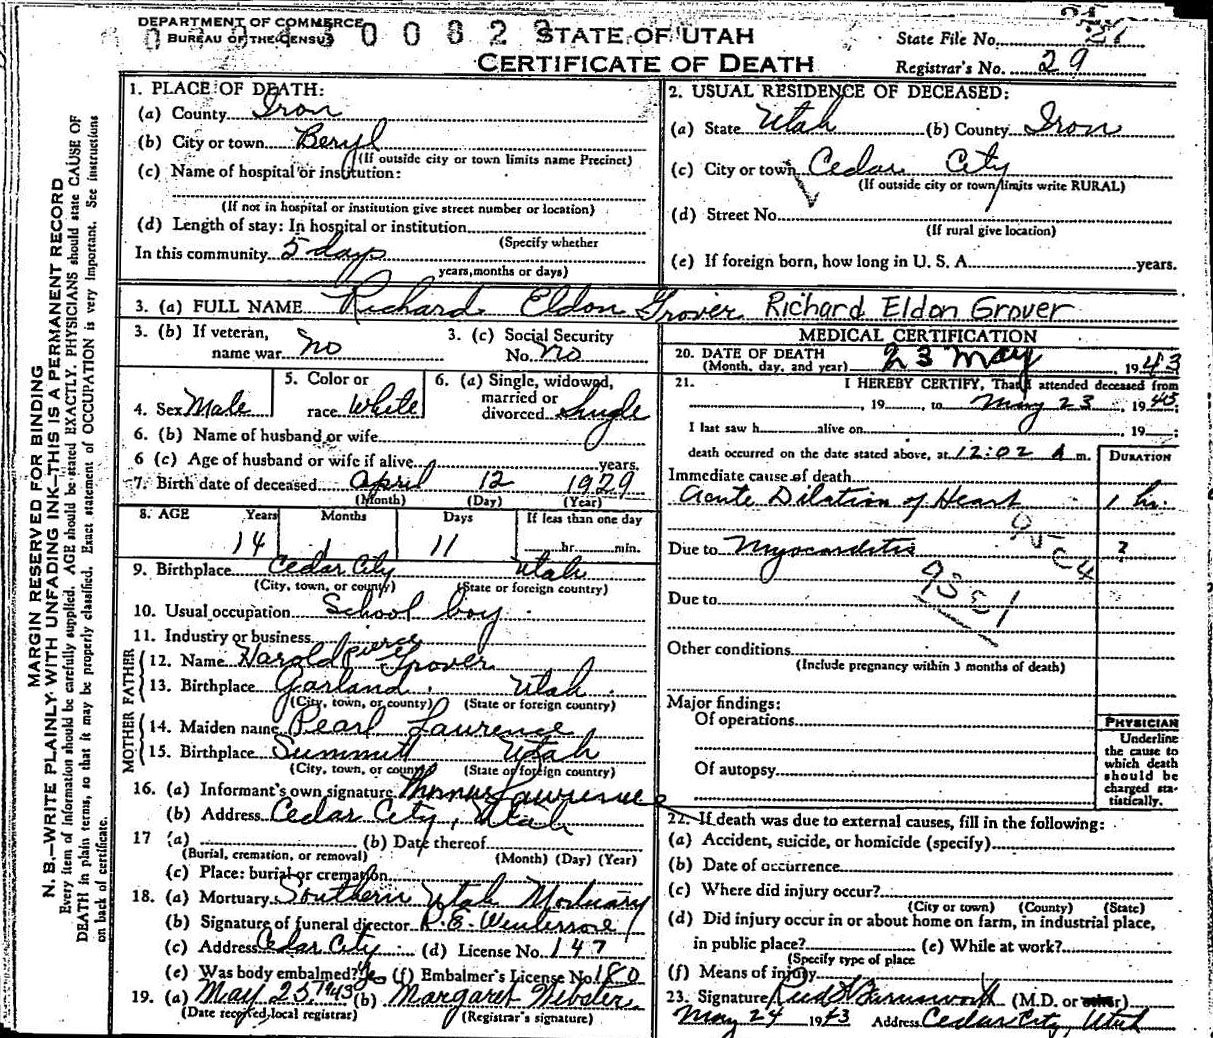 DEPARTMENT OF COMMERCE
BUREAU OF THE CENSUS
0082
STATE OF UTAH
CERTIFICATE OF DEATH
State File No.
Registrar's No. 29
MARGIN RESERVED FOR BINDING
N. B.—WRITE PLAINLY WITH UNFADING INK—THIS IS A PERMANENT RECORD
Every item of information should be carefully supplied. AGE should be stated EXACTLY. PHYSICIANS should state CAUSE OF
DEATH in plain terms, so that it may be properly classified. Exact statement of OCCUPATION is very important. See instructions
on back of certificate.
1. PLACE OF DEATH:
(a) County Iron
(b) City or town Beryl
(If outside city or town limits name Precinct)
(c) Name of hospital or institution:
(If not in hospital or institution give street number or location)
(d) Length of stay: In hospital or institution
(Specify whether
In this community 5 days
years, months or days)
2. USUAL RESIDENCE OF DECEASED:
(a) State Utah (b) County Iron
(c) City or town Cedar City
(If outside city or town limits write RURAL)
(d) Street No.
(If rural give location)
(e) If foreign born, how long in U. S. A. years.
3. (a) FULL NAME Richard Eldon Grover Richard Eldon Grover
3. (b) If veteran, name war No
3. (c) Social Security No. No
4. Sex Male
5. Color or race White
6. (a) Single, widowed, married or divorced Single
6. (b) Name of husband or wife
6 (c) Age of husband or wife if alive years.
7. Birth date of deceased April 12 1929
(Month) (Day) (Year)
8. AGE Years Months Days If less than one day
14 1 11 hr. min.
9. Birthplace Cedar City Utah
(City, town, or county) (State or foreign country)
10. Usual occupation School boy
11. Industry or business
FATHER
12. Name Harold Pierce Grover
13. Birthplace Garland, Utah
(City, town, or county) (State or foreign country)
MOTHER
14. Maiden name Pearl Lawrence
15. Birthplace Summit Utah
(City, town, or county) (State or foreign country)
16. (a) Informant's own signature Thomas Lawrence
(b) Address Cedar City, Utah
17 (a) (b) Date thereof
(Burial, cremation, or removal) (Month) (Day) (Year)
(c) Place: burial or cremation
18. (a) Mortuary Southern Utah Mortuary
(b) Signature of funeral director
(c) Address Cedar City (d) License No. 147
(e) Was body embalmed? Yes (f) Embalmer's License No. 180
19. (a) May 25, 1943 (b) Margaret Webster
(Date received local registrar) (Registrar's signature)
MEDICAL CERTIFICATION
20. DATE OF DEATH
(Month, day, and year) 23 May, 1943
21. I HEREBY CERTIFY, That I attended deceased from
, 19 , to May 23, 1943;
I last saw h alive on , 19 ;
death occurred on the date stated above, at 12:02 A m.
DURATION
Immediate cause of death
Acute Dilation of Heart 1 hr.
Due to Myocarditis ?
Due to
Other conditions
(Include pregnancy within 3 months of death)
Major findings:
Of operations
Of autopsy
PHYSICIAN
Underline
the cause to
which death
should be
charged sta-
tistically.
22. If death was due to external causes, fill in the following:
(a) Accident, suicide, or homicide (specify)
(b) Date of occurrence
(c) Where did injury occur?
(City or town) (County) (State)
(d) Did injury occur in or about home on farm, in industrial place,
in public place? (e) While at work?
(Specify type of place
(f) Means of injury
23. Signature Reed Farnsworth (M.D. or other)
May 24 1943 Address Cedar City, Utah